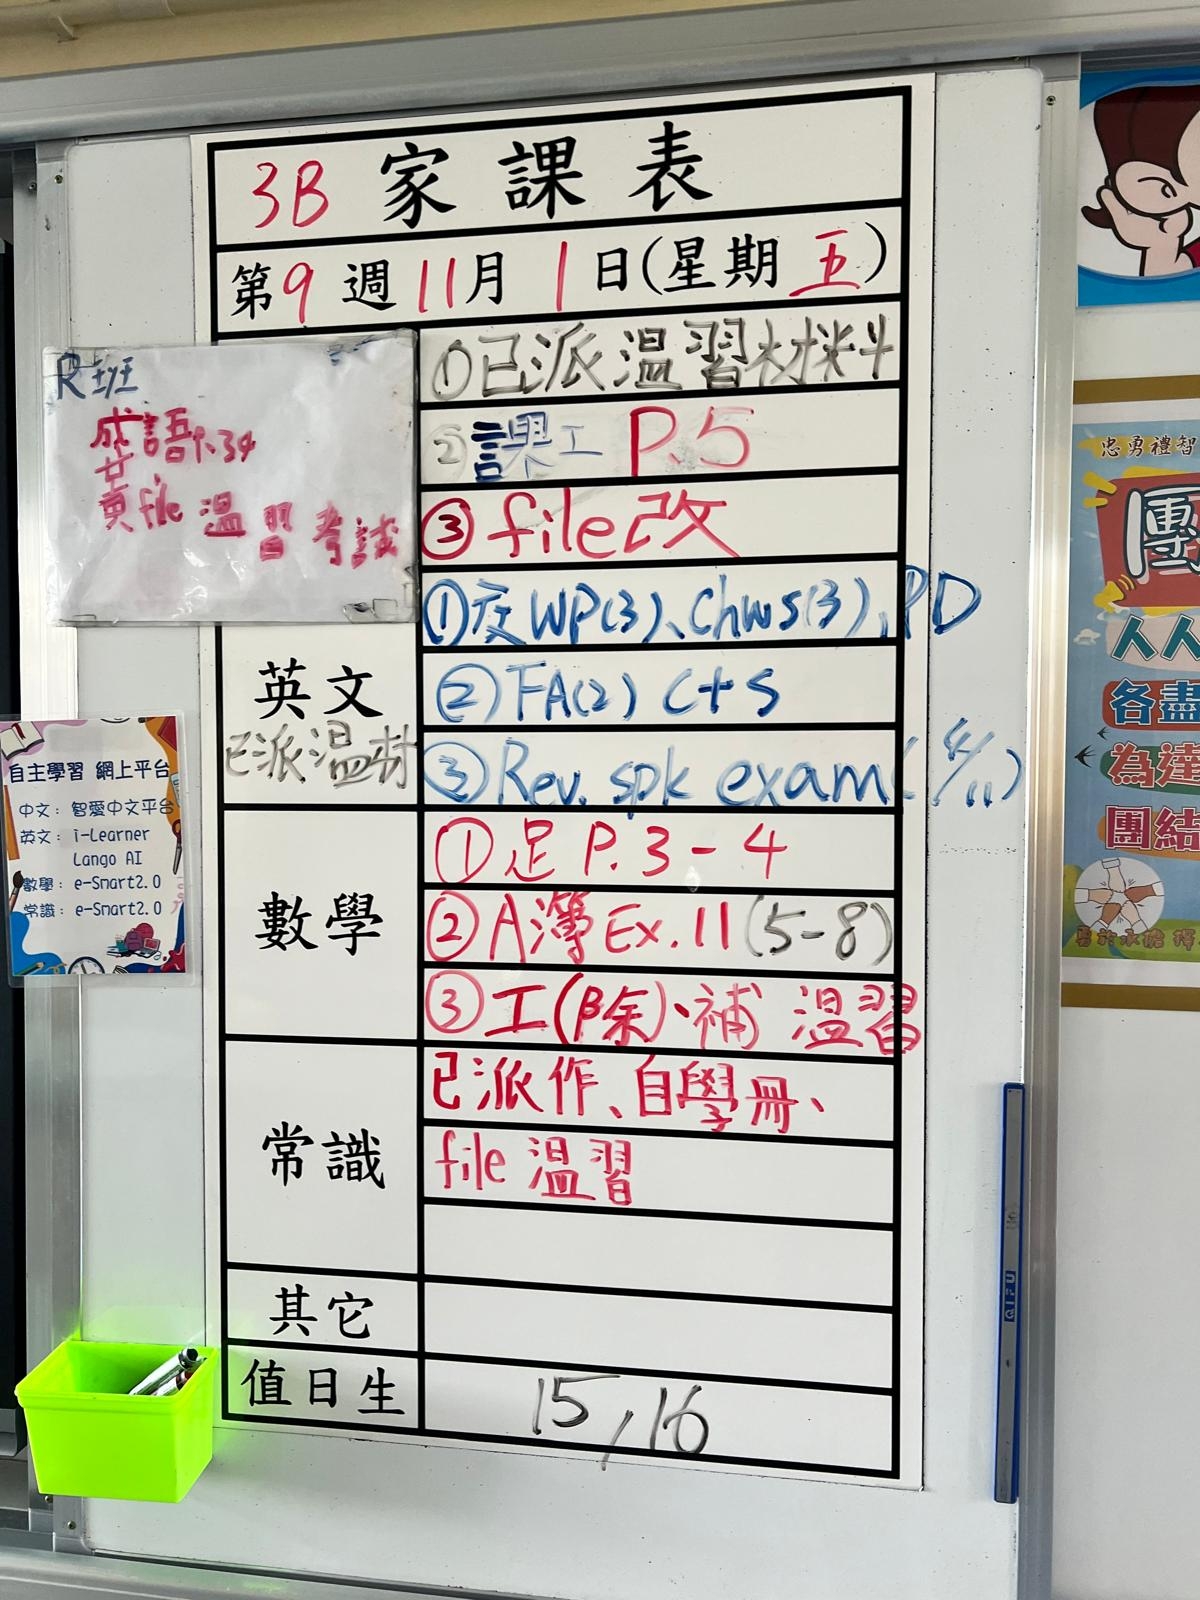 3B 家課表
第9週11月1日(星期五)
R班
成語P.34
黃file 溫習考試
①已派溫習材料
②課工 P.5
③file改
英文
已派溫材
①交WP(3)、Chws(3)、PD
②FA(2) C+S
③Rev. spk exam(4/11)
數學
①足 P.3-4
②A簿 Ex.11(5-8)
③工(除)、補 溫習
常識
已派作、自學冊、
file 溫習
其它
值日生
15,16
自主學習 網上平台
中文：智愛中文平台
英文：i-Learner
Lango AI
數學：e-Smart2.0
常識：e-Smart2.0
忠勇禮智
團
人人
各盡
為達
團結
QIFU